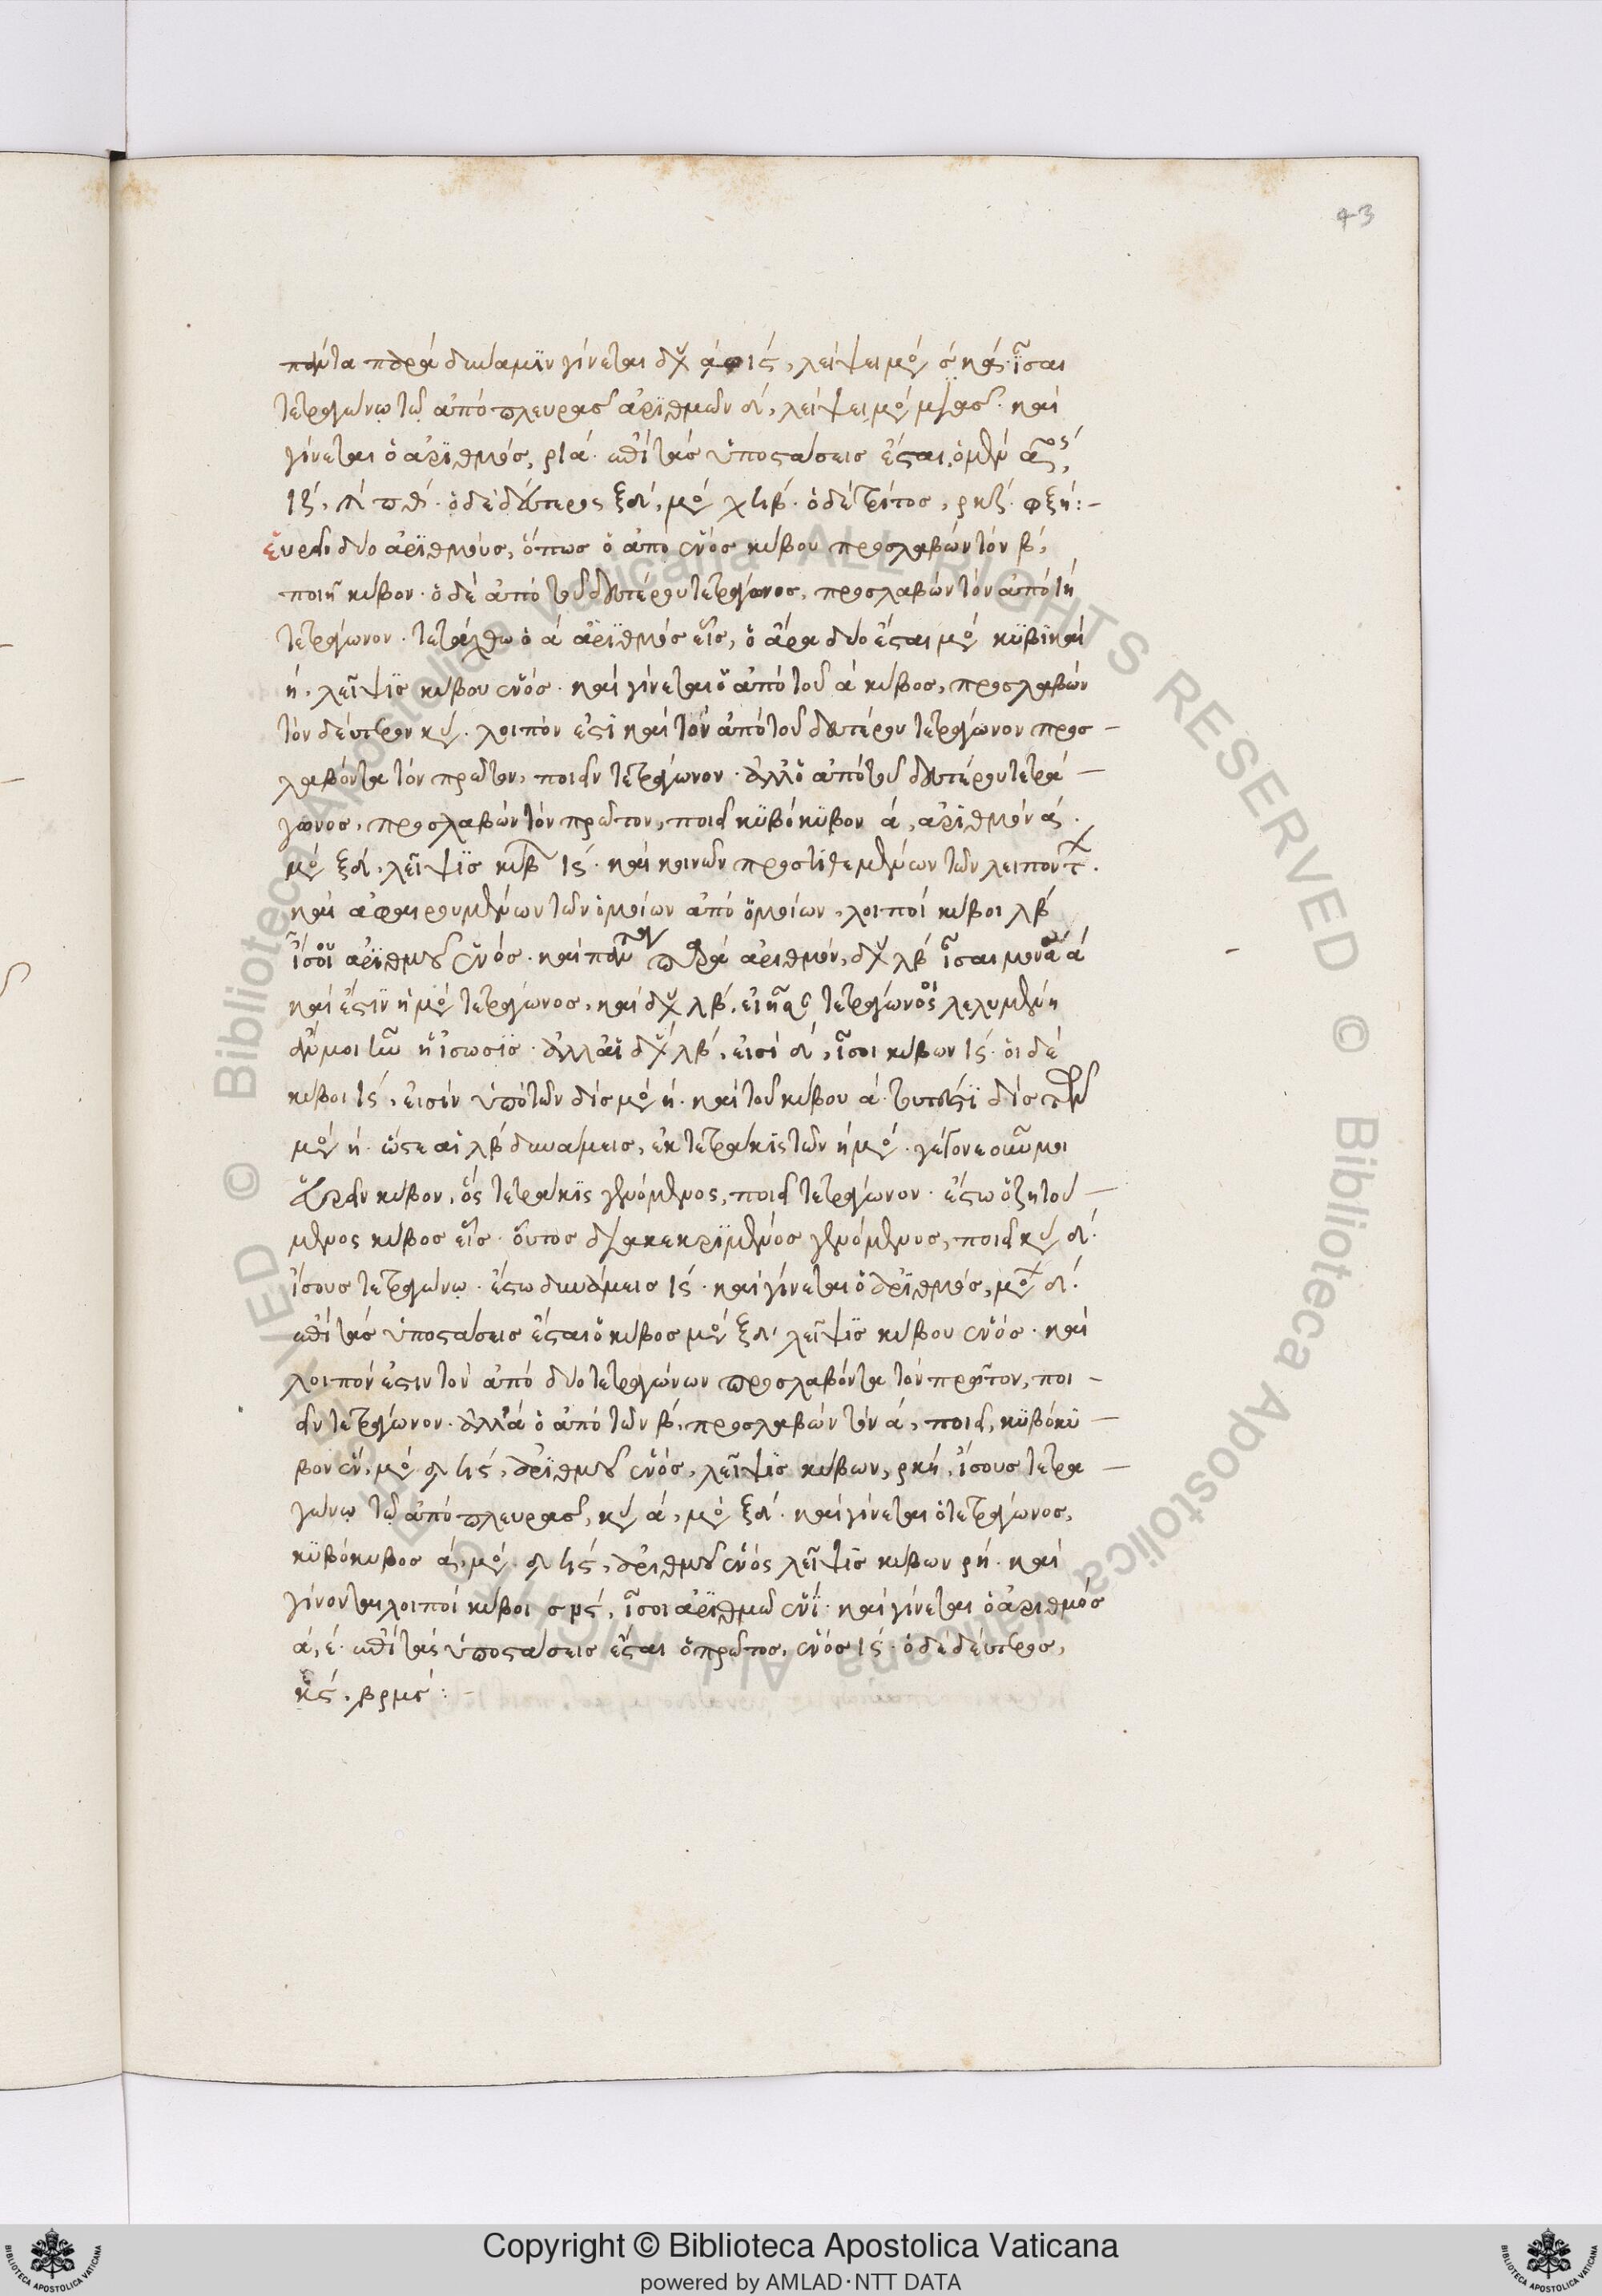 43
πάντα παρὰ δυναμϊν γίνεται δυ̃ ἀφις, λείψει μο σκα ἴσαι
τετραγώνῳ τῷ ἀπὸ πλευρασ ἀρϊθμῶν δ, λείψει μο μιασ. καὶ
γίνεται ὁ ἀρϊθμὸσ, ρια. ἐπὶ τὰσ ὑποστάσεισ ἔσται, ὁ μὲν αος,
ιζ, πθ. ὁ δὲ δεύτερος ξδ, μο χϟβ. ὁ δὲ τρίτοσ, ρκζ. φξη:-
εὑρεῖν δύο ἀρϊθμοὺσ, ὅπωσ ὁ ἀπὸ ἑνὸσ κύβου προσλαβὼν τὸν β,
ποιῆ κύβον. ὁ δὲ ἀπὸ τοῦ δευτέρου τετράγωνοσ, προσλαβὼν τὸν ἀπὸ τη
τετράγωνον. τετάχθω ὁ α ἀρϊθμὸσ εἷσ, ὁ ἄρα δύο ἔσται μο κϋβϊκαὶ
η. λεῖψϊσ κύβου ἑνόσ. καὶ γίνεται ὁ ἀπὸ τοῦ α κύβοσ, προσλαβὼν
τὸν δεύτερον κυ. λοιπὸν ἐστὶ καὶ τὸν ἀπὸ τοῦ δευτέρου τετράγωνον προσ-
λαβόντα τὸν πρῶτον, ποιεῖν τετράγωνον. ἀλλ' ὁ ἀπὸ τοῦ δευτέρου τετρά-
γωνοσ, προσλαβὼν τὸν πρῶτον, ποιεῖ κϋβόκϋβον α, ἀρϊθμὸν α.
μο ξδ, λεῖψϊσ κυβ ις. καὶ κοινῶν προστϊθεμένων τῶν λειποντ.
καὶ ἀφαιρουμένων τῶν ὁμοίων ἀπὸ ὁμοίων, λοιποὶ κύβοι λβ
ἴσοι ἀρϊθμοῦ ἑνόσ. καὶ παν παρὰ ἀριθμόν, δυ̃ λβ ἴσαι μονα α
καὶ ἔστϊν ἡ μο τετράγωνοσ, καὶ δυ̃ λβ, εἰ τετράγωνος λελυμένη
ἄν μοι ην ἡ ἴσωσϊσ. ἀλλ' αἱ δυ̃ λβ, εἰσὶ δ, ἴσοι κύβων ις. οἱ δὲ
κύβοι ις, εἰσὶν ὑπὸ τῶν δὶσ μο η. καὶ τοῦ κύβου α. τουτέστϊ δὶσ τῶν
μο η. ὥστε αἱ λβ δυνάμεισ, ἐκ τετράκϊς τῶν η μο. γέγονε οὖν μοι
εὑρεῖν κύβον, ὃς τετράκϊς γενόμενος, ποιεῖ τετράγωνον. ἔστω ὁ ζητού-
μενος κύβοσ εἷσ. οὗτοσ γενόμενοσ, ποιεῖ κυ δ.
ἴσουσ τετραγώνῳ. ἔστω δυνάμεισ ις. καὶ γίνεται ὁ ἀρϊθμὸσ, μο δ.
ἐπὶ τὰσ ὑποστάσεισ ἔσται ὁ κύβοσ μο ξδ λεῖψϊσ κύβου ἑνόσ. καὶ
λοιπόν ἐστιν τὸν ἀπὸ δύο τετραγώνων προσλαβόντα τὸν πρῶτον, ποι-
εῖν τετράγωνον. ἀλλὰ ὁ ἀπὸ τῶν β, προσλαβὼν τὸν α, ποιεῖ, κϋβόκϋ-
βον ἕν, μο δϟς, ἀρϊθμοῦ ἑνόσ, λεῖψϊσ κύβων, ρκη, ἴσουσ τετρα-
γώνῳ τῷ ἀπὸ πλευρασ, κυ α, μο ξδ. καὶ γίνεται ὁ τετράγωνοσ,
κϋβόκυβοσ α, μο. δϟς, ἀριθμοῦ ἑνὸς λεῖψϊσ κύβων ρη. καὶ
γίνονται λοιποὶ κύβοι σμς, ἴσοι ἀρϊθμῷ ἑνΐ. καὶ γίνεται ὁ ἀριθμὸσ
α, ε. ἐπὶ τὰσ ὑποστάσεισ ἔσται ὁ πρῶτοσ, ἑνὸσ ις. ὁ δὲ δεύτεροσ,
κς, βρμς:-
Copyright © Biblioteca Apostolica Vaticana
powered by AMLAD·NTT DATA